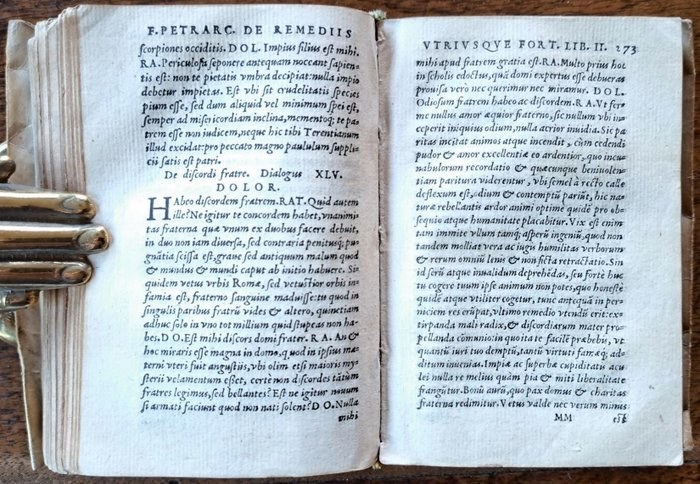 F. PETRARC. DE REMEDIIS
scorpiones occiditis. DOL. Impius filius est mihi.
RA. Periculosa seponere antequam noceant sapien-
tis est: non te pietatis vmbra decipiat: nulla impio
debetur impietas. Est vbi sit crudelitatis species
pium esse, sed dum aliquid vel minimum spei est,
semper ad misericordiam inclina, mementoq; te pa-
trem esse non iudicem, neque hic tibi Terentianum
illud excidat: pro peccato magno paululum supplic
cii satis est patri.
De discordi fratre. Dialogus XLV.
DOLOR.
HAbeo discordem fratrem. RAT. Quid autem
ille? Ne igitur te concordem habet, vnanimi
tas fraterna quæ vnum ex duobus facere debuit,
in duo non iam diuersa, sed contraria penitusq; pu-
gnātia scissa est, graue sed antiquum malum quod
& mundus & mundi caput ab initio habuere. Si
quidem vetus vrbis Romæ, sed vetustior orbis in-
famia est, fraterno sanguine maduisse: tu quod in
singulis paribus fratrū vides & altero, quinetiam
adhuc solo in vno tot millium quid stupeas non ha-
bes. DO. Est mihi discors domi frater. RA. An &
hoc miraris esse magna in domo, quod in ipsius ma-
terni vteri fuit angustiis, vbi olim etsi maioris my-
sterii velamentum esset, certe non discordes tātùm
fratres legimus, sed bellantes? Est ne igitur nouum
si armati faciunt quod non nati solent? DO. Nulla
mihi
VTRIVSQVE FORT. LIB. II. 273
mihi apud fratrem gratia est. RA. Multo prius hoc
in scholis edoctus, quā domi expertus esse debueras
prouisa vero nec querimur nec miramur. DOL.
Odiosum fratrem habeo ac discordem. RA. Vt fer-
me nullus amor æquior fraterno, sic nullum vbi in-
ceperit iniquius odium, nulla acrior inuidia. Sic pa
ritas incitat animos atque incendit, cùm cedendi
pudor & amor excellentiæ eo ardentior, quo incu-
nabulorum recordatio & quæcunque beniuolen-
tiam paritura viderentur, vbi semel à recto calle
deflexum est, odium & contemptū pariūt, hic na-
turæ rebellantis ardor animi optime quidē pro ob-
sequio atque humanitate placabitur. Vix est enim
tam immite vllum tamq; asperū ingeniū, quod non
tandem molliat vera ac iugis humilitas verborum
& rerum omniū lenis & non ficta retractatio. Sin
id serū atque inualidum deprehēdas, seu forte huc
tu cogere tuum ipse animum non potes, quo honeste
quidē atque vtiliter cogetur, tunc antequā in per-
niciem res erūpat, vltimo remedio vtendū erit: ex-
tirpanda mali radix, & discordiarum mater pro-
pellanda cōmunio: in quo te facilē præbebis, vt
quantū iuri tuo demptū, tantū virtuti famæq; ad-
ditum inuenias. Impiæ ac superbæ cupiditatis acu
lei nulla re melius quàm pia & miti liberalitate
frangūtur. Bonū aurū, quo pax domus & charitas
fraterna redimitur. Vetus valde nec verum minus
MM est